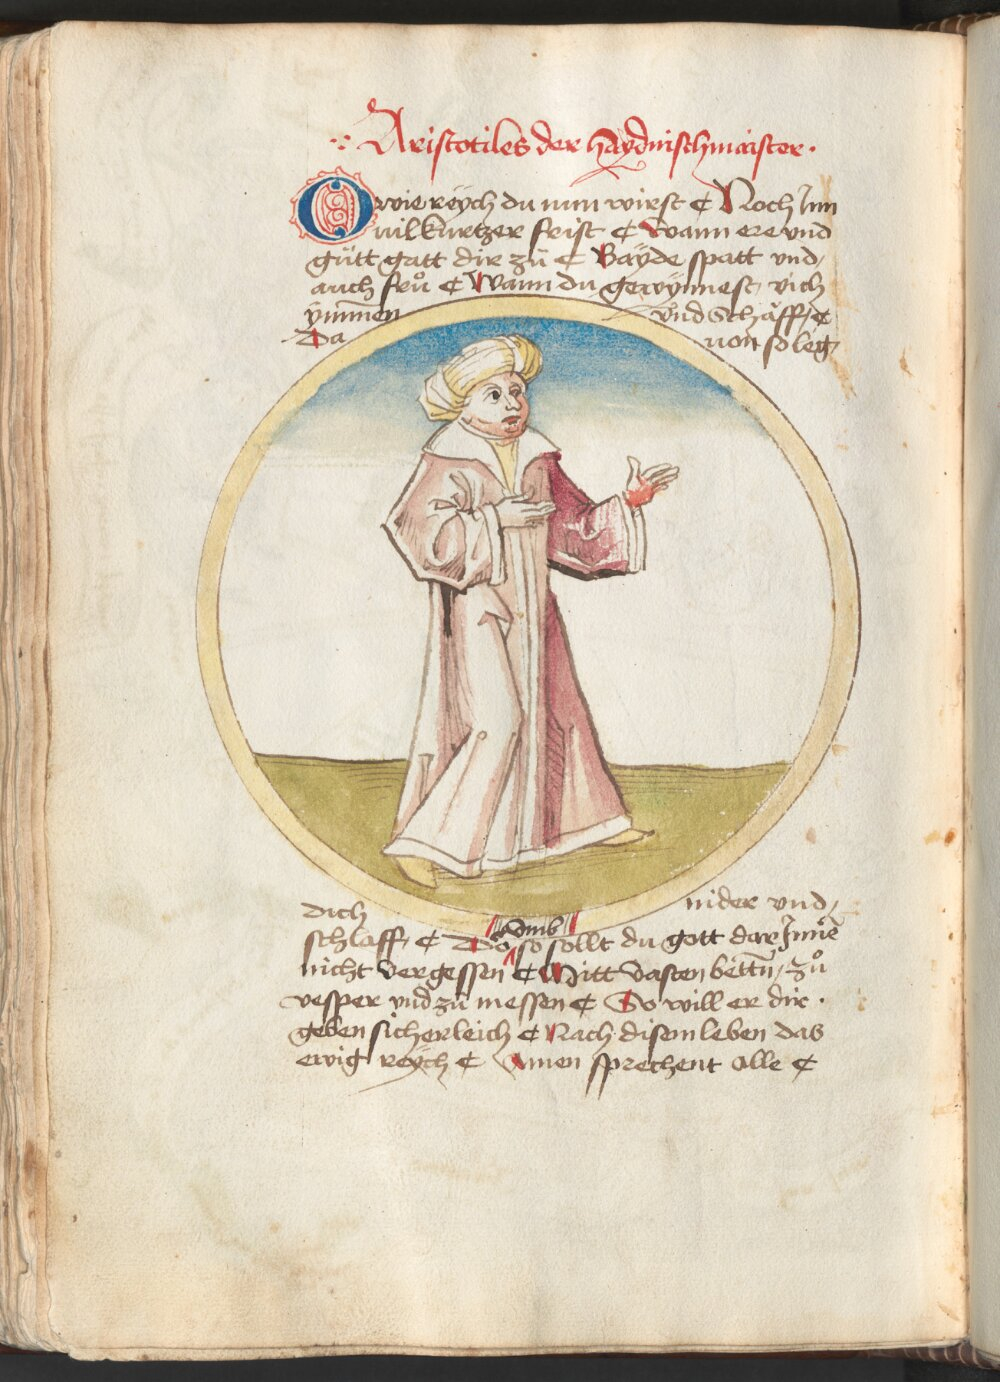 Aristotiles der haydnisch maister ·
O wie reÿch du nun wirst ¢ Noch Inn
uil kurtzer frist ¢ Wann ere und
gütt gatt dir zü ¢ Bayde spatt vnd
auch frů ¢ Wann du gewÿnnest vich
ÿmmen vnd Schäff ¢
Da von so leg
dich nider vnd
schlaff ¢ Dar vmb so sollt du gott dar Inne
nicht vergessen ¢ Mitt vasten bettn zů
vesper vnd zü messen ¢ So will er dir ·
geben sicherleich ¢ Nach disem leben das
ewig reÿch ¢ Amen sprechent alle ¢